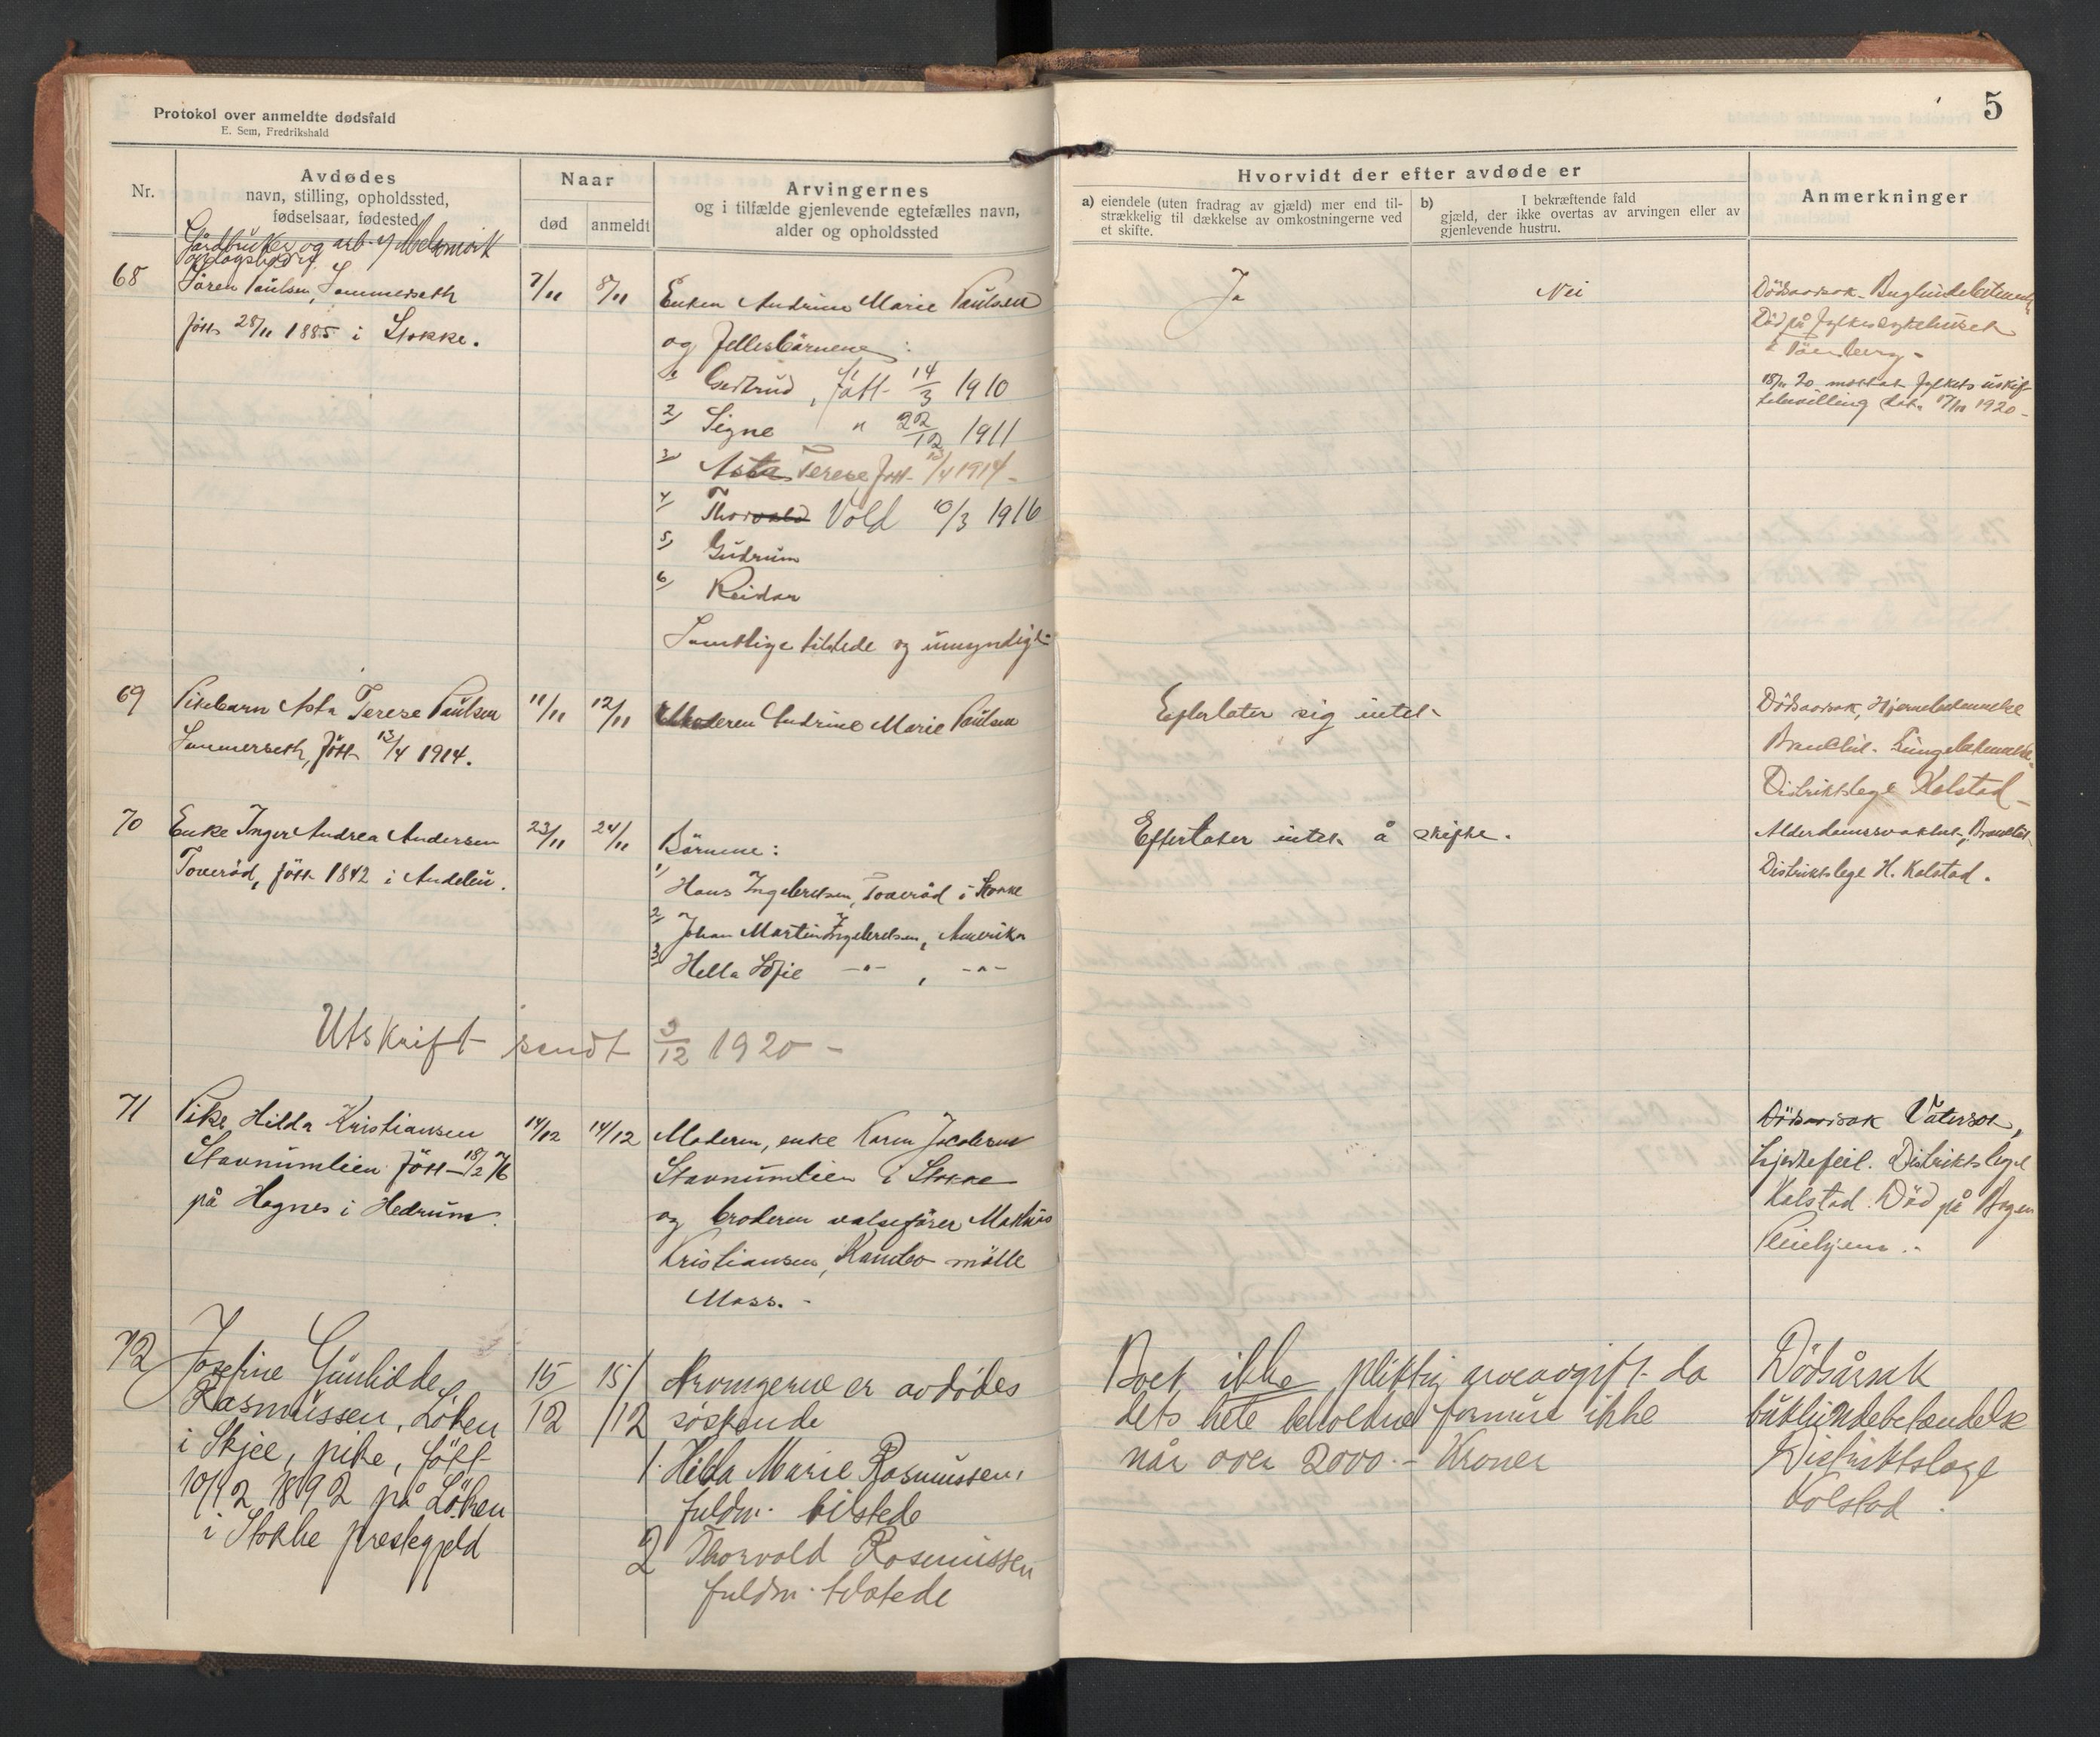 Protokol over anmeldte dødsfald
E. Sem, Fredrikshald
5
Nr.
Avdødes
navn, stilling, opholdssted,
fødselsaar, fødested
Naar
død
anmeldt
Arvingernes
og i tilfælde gjenlevende egtefælles navn,
alder og opholdssted
Hvorvidt der efter avdøde er
a) eiendele (uten fradrag av gjæld) mer end til-
strækkelig til dækkelse av omkostningerne ved
et skifte.
b) I bekræftende fald
gjæld, der ikke overtas av arvingen eller av
gjenlevende hustru.
Anmerkninger
Gårdbruker og arb. v/
68
Sören Paulsen, Sommerseth
født 28/11 1885 i Stokke.
7/11
8/11
Enken Andrine Marie Paulsen
og fellesbörnene:
1/ Gertrud, født 14/3 1910
2/ Signe " 22/12 1911
3/ Asta Terese født 13/4 1914 -
4/ Thorvald Vold 10/3 1916
5/ Gudrun
6/ Reidar
Samtlige tilstede og umyndige
Ja
Nei
Dödsaarsak. Bughindebetændelse
Död på fylkessykehuset
i Tönsberg -
18/11 20 mottat fylkets uskif-
tebevilling dat. 17/11 1920 -
69
Pikebarn Asta Terese Paulsen
Sommerseth, født 13/4 1914.
11/11
12/11
Moderen Andrine Marie Paulsen
Efterlater sig intet
Dödsaarsak, Hjernebetændelse
Lungebetændelse
Distriktslege Kolstad -
70
Enke Inger Andrea Andersen
Toveröd, født 1842 i Andebu.
23/11
24/11
Börnene:
1/ Hans Ingebretsen, Toveröd i Stokke
2/ Johan Martin Ingebretsen, Amerika
3/ Hella Sofie -"- , -"-
Efterlater intet å skifte.
Alderdomssvakhet,
Distriktslege H. Kolstad.
Utskrift sendt 3/12 1920 -
71
Pike, Hilda Kristiansen
Stavnumlien født 18/2 76
på Hagnes i Hedrum.
14/12
14/12
Moderen, enke Karen Jacobsen
Stavnumlien i Stokke
og broderen valsefører Mathias
Kristiansen, Kambo mölle
Moss. -
Dödsaarsak Vatersot,
hjertefeil. Distriktslege
Kolstad. Död på Bogen
Pleiehjem.
72
Josefine Gunhilde
Rasmussen, Löken
i Skjee, pike, født
10/12 1892 på Löken
i Stokke prestegjeld
15/12
15/12
Arvingerne er avdødes
søskende
1. Hilda Marie Rasmussen,
fuldm. tilstede
2 Thorvald Rasmussen
fuldm. tilstede
Boet ikke pliktig arveavgift da
dets hele beholdne formue ikke
når over 2000.- Kroner
Dödsårsak
bukhindebetændelse
Distriktslæge
Kolstad.